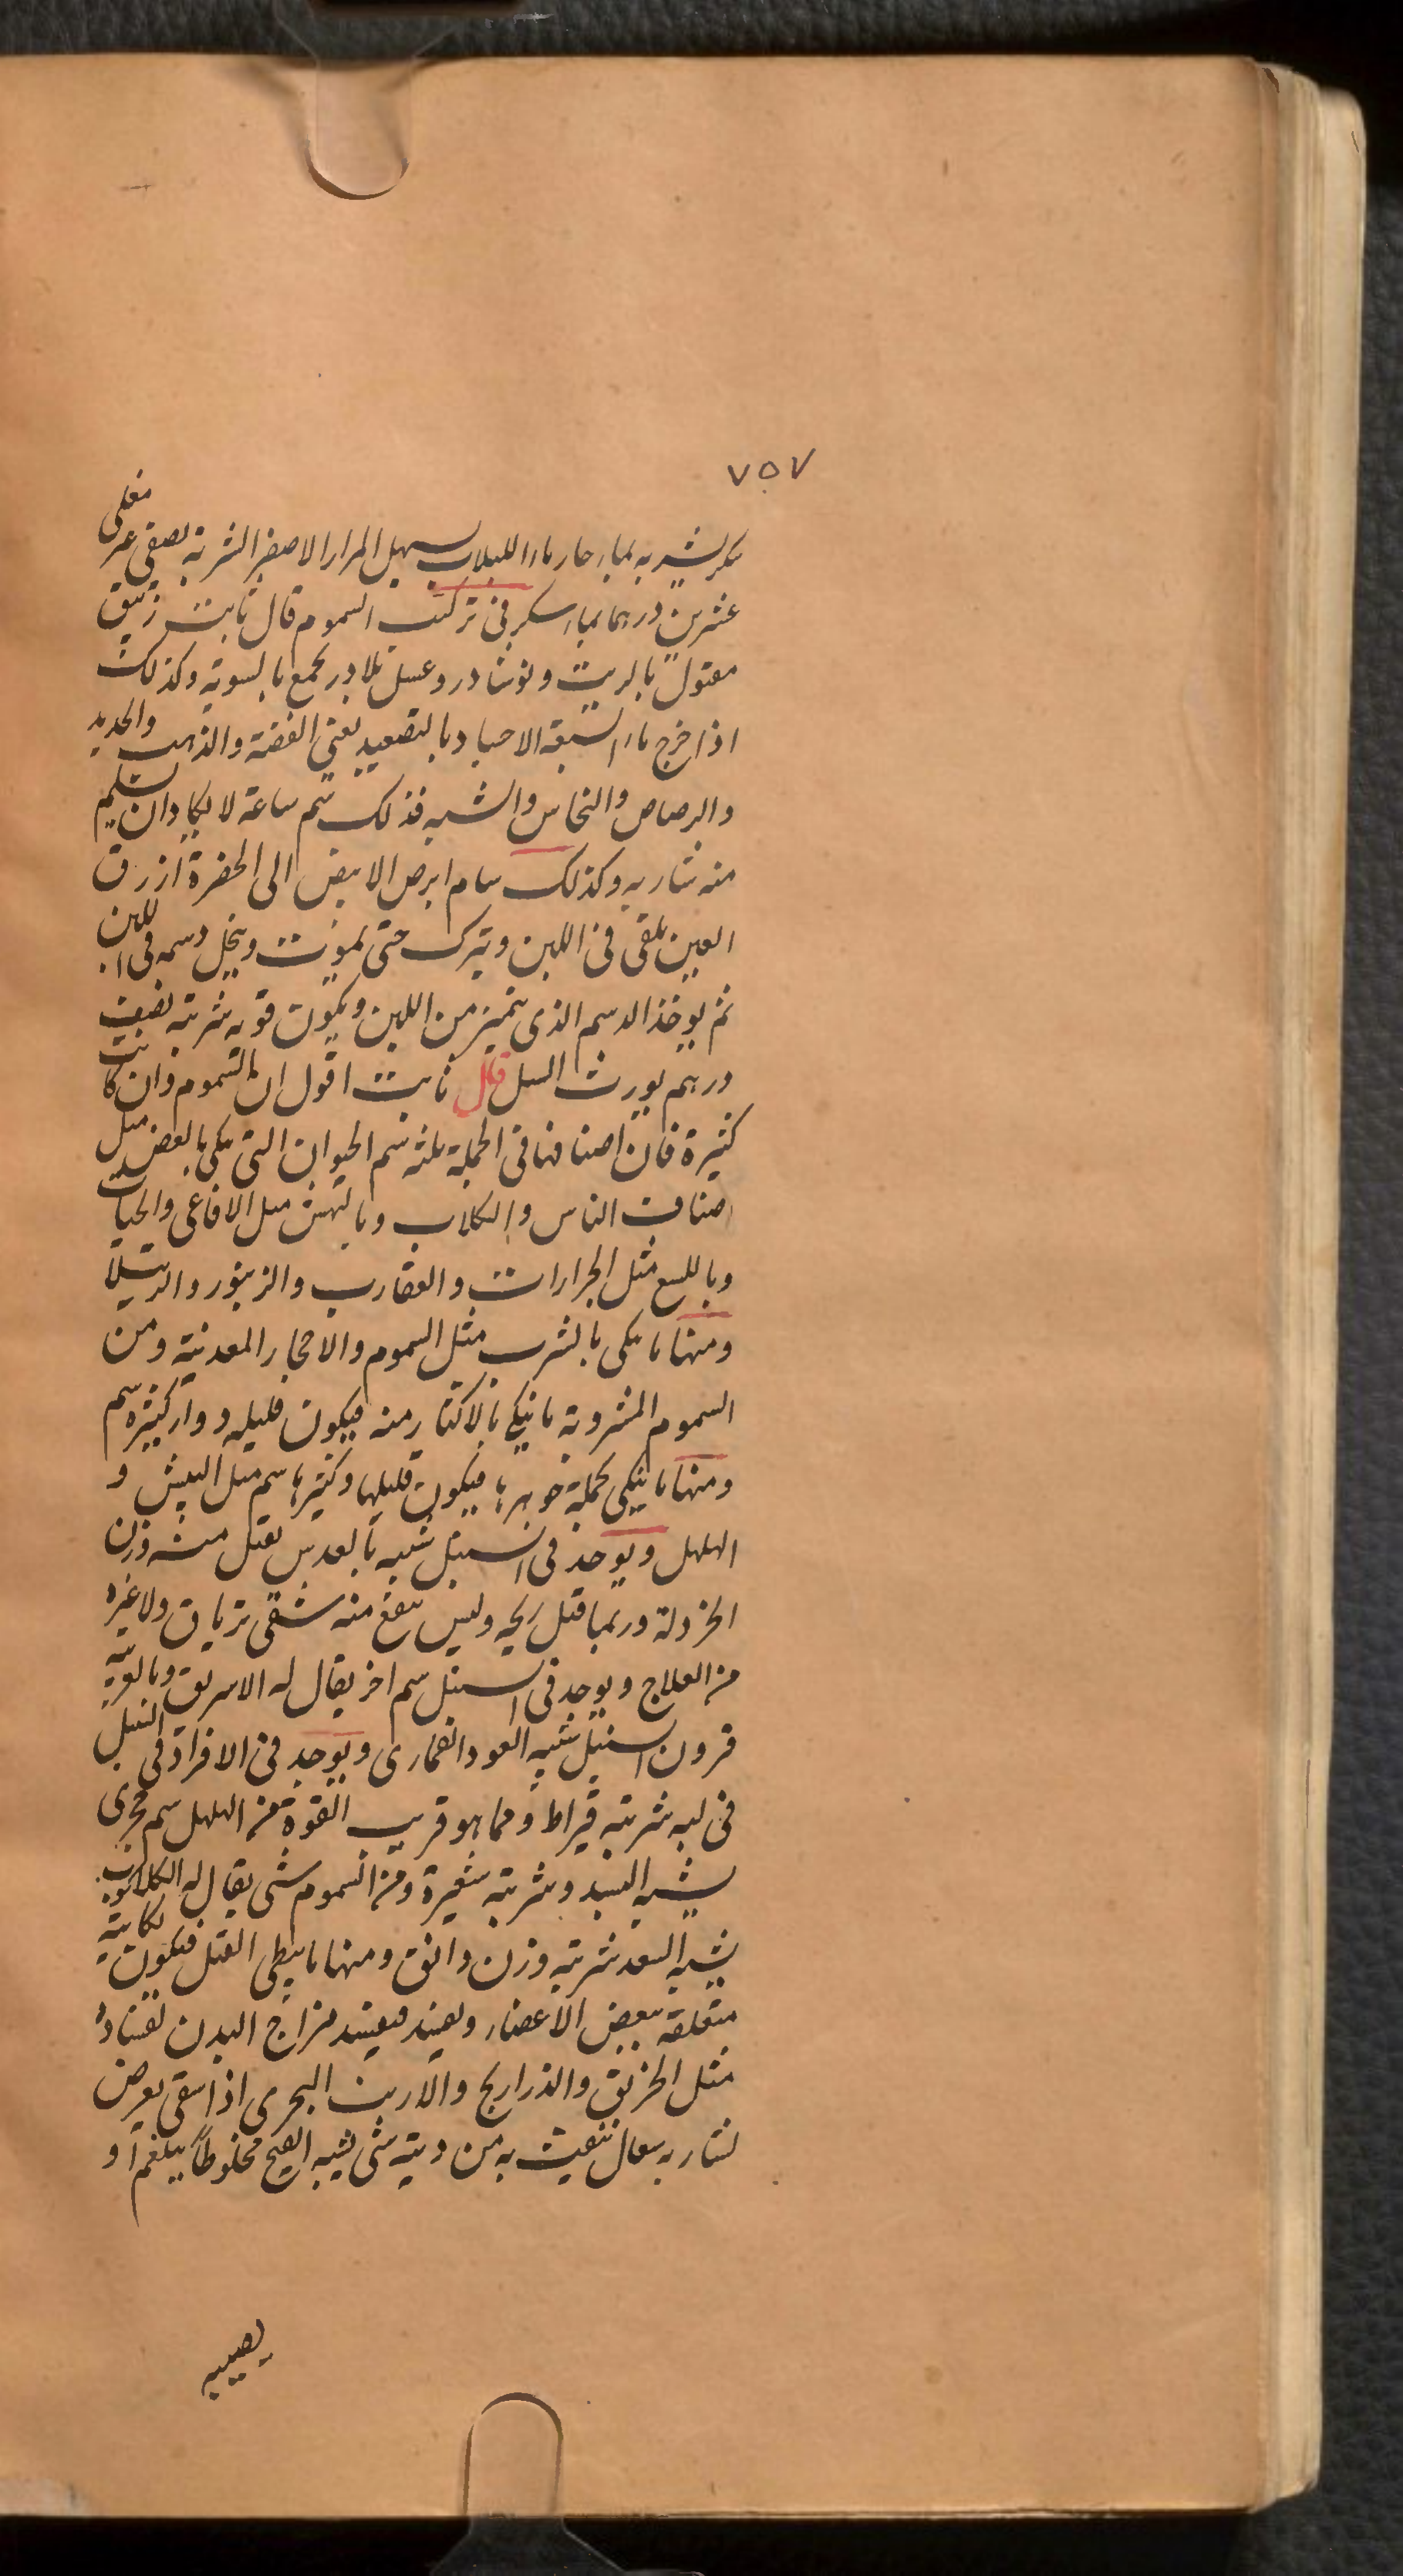 ٧٥٧
سكر يشربه بماء حار ماء اللبلاب يسهل المرار الاصفر الشربة يصفى غير مغلى
عشرين درهما بماء سكر فى تركيب السموم قال ثابت زيبق
مقتول بالزيت ونوشادر وعسل بلادر يجمع بالسوية وكذلك
اذا خرج ماء السبعة الاجساد بالتصعيد يعنى الفضة والذهب والحديد
والرصاص والنحاس والشبه فذلك سم ساعة لا يكاد ان يسلم
منه شاربه وكذلك سام ابرص الابيض الى الخضرة ازرق
العين يلقى فى اللبن ويترك حتى يموت وينحل دسمه فى اللبن
ثم يوخذ الدسم الذى يتميز من اللبن ويكون قوته شربته نصف
درهم يورث السل قال ثابت اقول ان السموم وان كانت
كثيرة فان اصنافها فى الجملة ثلثه سم الحيوان التى ينكى بالعض مثل
اصناف الناس والكلاب وبالنهش مثل الافاعى والحيات
وباللسع مثل الجرارات والعقارب والزنبور والرتيلا
ومنها ما ينكى بالشرب مثل السموم والاحجار المعدنية ومن
السموم المشروبة ما ينكى بالاكثار منه فيكون قليله دواء وكثيره سم
ومنها ما ينكى بجملة جوهرها فيكون قليلها وكثيرها سم مثل البيش و
الهلهل ويوجد فى السنبل شبه بالعدس يقتل منه وزن
الخردلة وربما قتل ريحه وليس ينفع منه شى ترياق ولا غيره
من العلاج ويوجد فى السنبل سم اخر يقال له
قرون السنبل شبه العود القمارى ويوجد فى الافراد فى النبل
فى لبه شربته قيراط ومما هو قريب القوة من الهلهل سم
يشبه البسد وشربته شعيرة ومن السموم شى يقال له
يشبه السعد شربته وزن دانق ومنها ما يبطى القتل فيكون نكايته
متعلقة ببعض الاعضاء ويفسد فيفسد مزاج البدن لفساده
مثل الخربق والذراريح والارنب البحرى اذا سقى يعرض
لشاربه سعال ينفث به من ريته شى يشبه القيح مخلوطاً ببلغم او
يصيبه